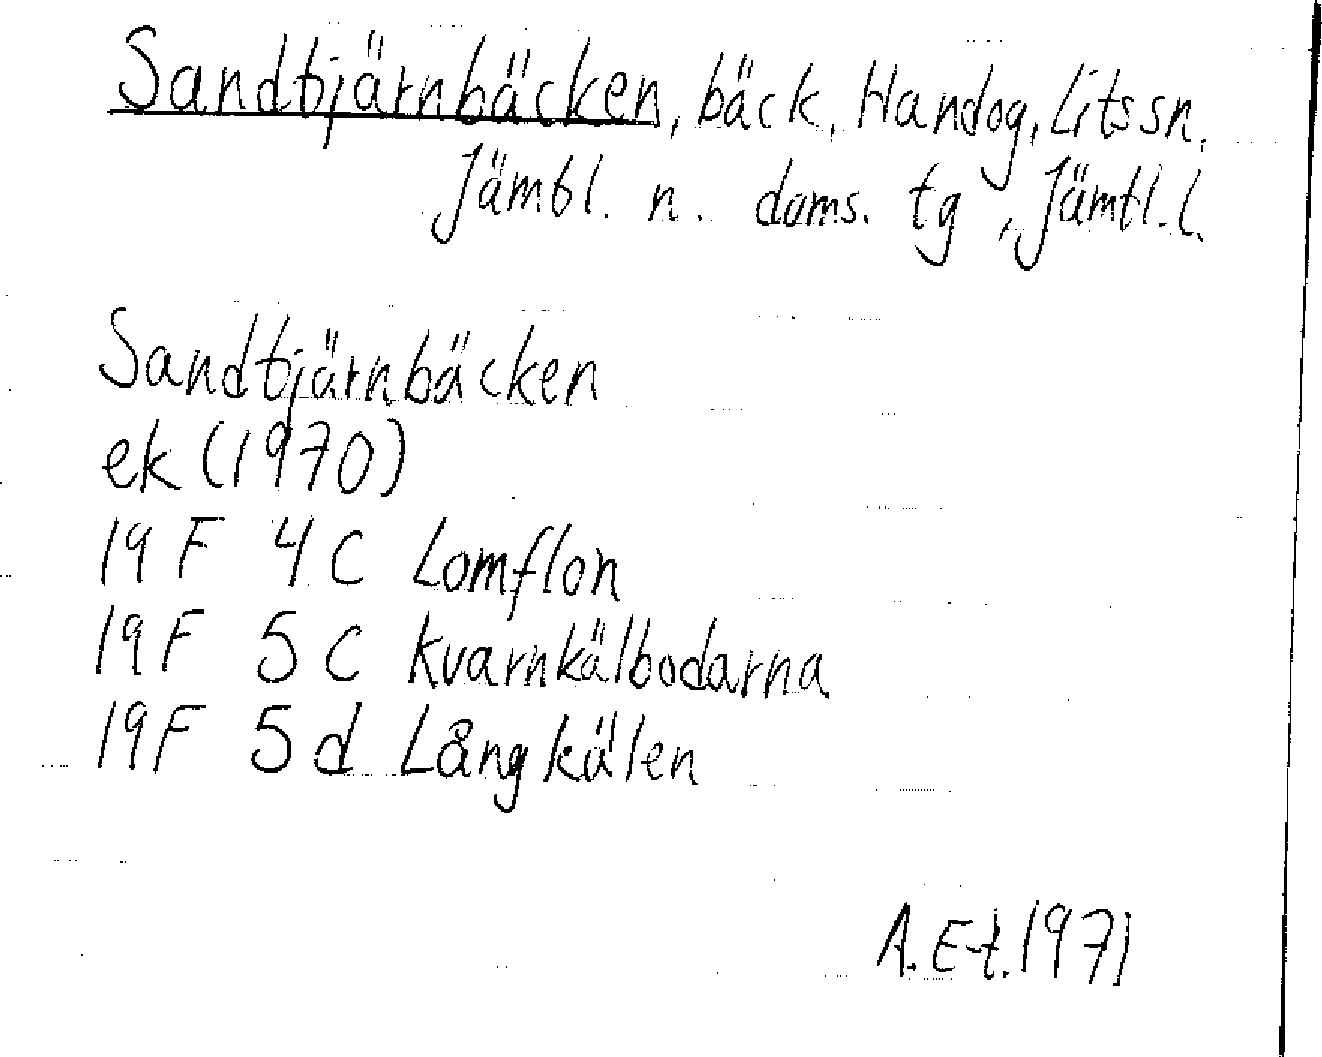 Sandtjärnbäcken, bäck, Handog, Lits sn.
Jämtl. n. doms. tg, Jämtl. l.
Sandtjärnbäcken
ek (1970)
19 F 4 C Lomflon
19 F 5 C Kvarnkälbodarna
19 F 5 d Långkälen
A. E-t. 1971